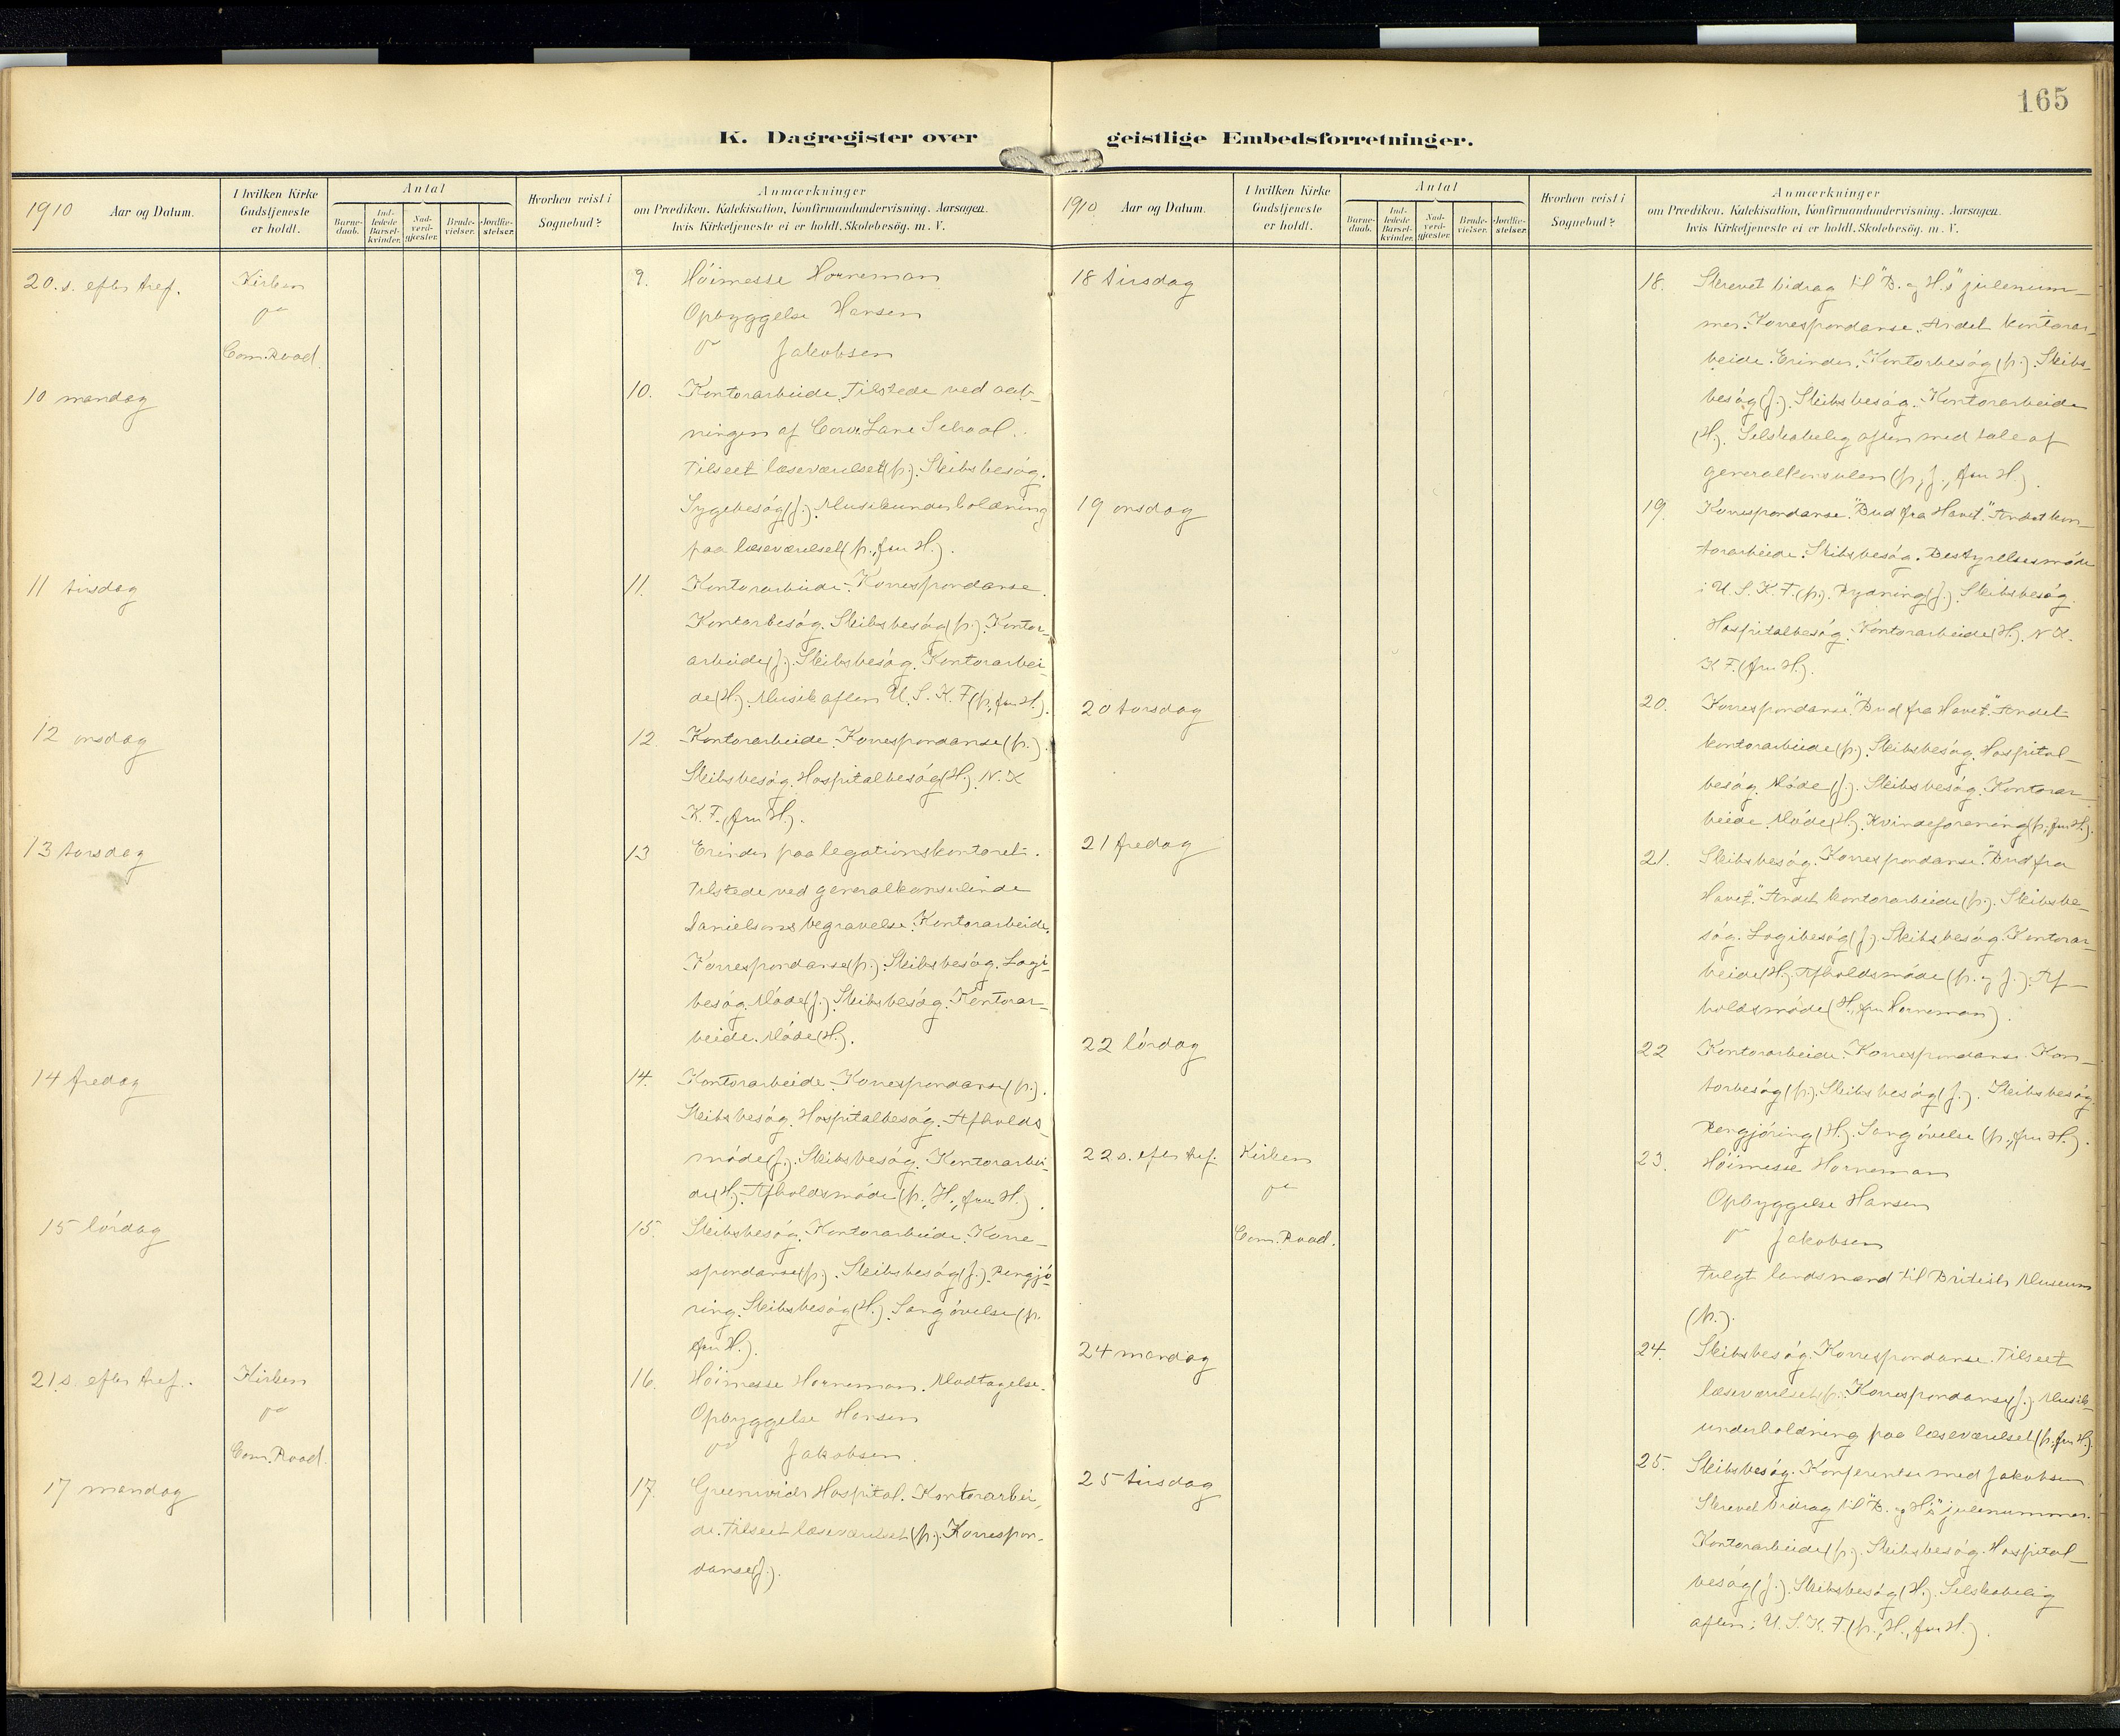 165
K. Dagregister over
1910 Aar og Datum.
I hvilken Kirke Gudstjeneste er holdt.
Antal
Barne-daab.
Ind-ledede Barsel-kvinder.
Nad-verd-gjæster.
Brude-vielser.
Jordfæ-stelser.
Hvorhen reist i Sognebud?
Anmærkninger
om Prædiken, Katekisation, Konfirmandundervisning, Aarsagen,
hvis Kirketjeneste ei er holdt, Skolebesög, m. V.
20. s. efter tref. Kirken 9. Höimesse Horneman
do Opbyggelse Hansen
Com. Road. do Jakobsen
10 mandag 10. Kontorarbeide. Tilstede ved aab-
ningen af Cow Lane School.
Tilseet læseværelset (p.). Skibsbesög.
Sygebesög (J.). Musikunderholdning
paa læseværelset (p., fru H.).
11 tirsdag 11. Kontorarbeide. Korrespondanse.
Kontorbesög. Skibsbesög (p.). Kontor-
arbeide (J.). Skibsbesög. Kontorarbei-
de (H.). Musikaften U. S. K. F. (p., fru H.).
12 onsdag 12. Kontorarbeide. Korrespondanse (p.).
Skibsbesög. Hospitalbesög (H.). N. K.
K. F. (fru H.).
13 torsdag 13 Erinder paa legationskontoret.
Tilstede ved generalkonsulinde
Danielsens begravelse. Kontorarbeide.
Korrespondanse (p.). Skibsbesög. Logi-
besög. Möde (J.). Skibsbesög. Kontorar-
beide. Möde (H.).
14 fredag 14. Kontorarbeide. Korrespondanse (p.).
Skibsbesög. Hospitalbesög. Afholds-
möde (J.). Skibsbesög. Kontorarbei-
de (H.). Afholdsmöde (p., H., fru H.).
15 lördag 15. Skibsbesög. Kontorarbeide. Korre-
spondanse (p.). Skibsbesög (J.). Rengjö-
ring. Skibsbesög (H.). Sangövelse (p.
fru H.).
21 s. efter tref. Kirken 16. Höimesse Horneman. Modtagelse.
do Opbyggelse Hansen
Com. Road. do Jakobsen.
17 mandag 17. Greenwich Hospital. Kontorarbei-
de. Tilseet læseværelset (p.). Korrespon-
danse (J.).
geistlige Embedsforretninger.
1910 Aar og Datum.
I hvilken Kirke Gudstjeneste er holdt.
Antal
Barne-daab.
Ind-ledede Barsel-kvinder.
Nad-verd-gjæster.
Brude-vielser.
Jordfæ-stelser.
Hvorhen reist i Sognebud?
Anmærkninger
om Prædiken, Katekisation, Konfirmandundervisning, Aarsagen,
hvis Kirketjeneste ei er holdt, Skolebesög, m. V.
18 tirsdag 18. Skrevet bidrag til "B. og H.s" julenum-
mer. Korrespondanse. Andet kontorar-
beide. Erinder. Kontorbesög (p.). Skibs-
besög (J.). Skibsbesög. Kontorarbeide
(H.). Selskabelig aften med tale af
generalkonsulen (p., J., fru H.).
19 onsdag 19. Korrespondanse. "Bud fra Havet." Andet kon-
torarbeide. Skibsbesög. Bestyrelsesmöde
i U. S. K. F. (p.). Rydning (J.). Skibsbesög.
Hospitalbesög. Kontorarbeide (H.). N. K.
K. F. (fru H.).
20 torsdag 20. Korrespondanse. "Bud fra Havet." Andet
kontorarbeide (p.). Skibsbesög. Hospital-
besög. Möde (J.). Skibsbesög. Kontorar-
beide. Möde (H.). Kvindeforening (p., fru H.).
21 fredag 21. Skibsbesög. Korrespondanse. "Bud fra
Havet." Andet kontorarbeide (p.). Skibsbe-
sög. Logibesög (J.). Skibsbesög. Kontorar-
beide (H.). Afholdsmöde (p. og J.). Af-
holdsmöde (H., fru Horneman).
22 lördag 22 Kontorarbeide. Korrespondanse. Kon-
torbesög (p.). Skibsbesög (J.). Skibsbesög.
Rengjöring (H.). Sangövelse (p., fru H.).
22 s. efter tref. Kirken 23. Höimesse Horneman
do Opbyggelse Hansen
Com. Road. do Jakobsen
Fulgt landsmænd til British Museum
(p.).
24 mandag 24. Skibsbesög. Korrespondanse. Tilseet
læseværelset (p.). Korrespondanse (J.). Musik-
underholdning paa læseværelset (p., fru H.).
25 tirsdag 25. Skibsbesög. Konferentse med Jakobsen.
Skrevet bidrag til "B. og H.s" julenummer.
Kontorarbeide (p.). Skibsbesög. Hospital-
besög (J.). Skibsbesög (H.). Selskabelig
aften i U. S. K. F. (p., H., fru H.).